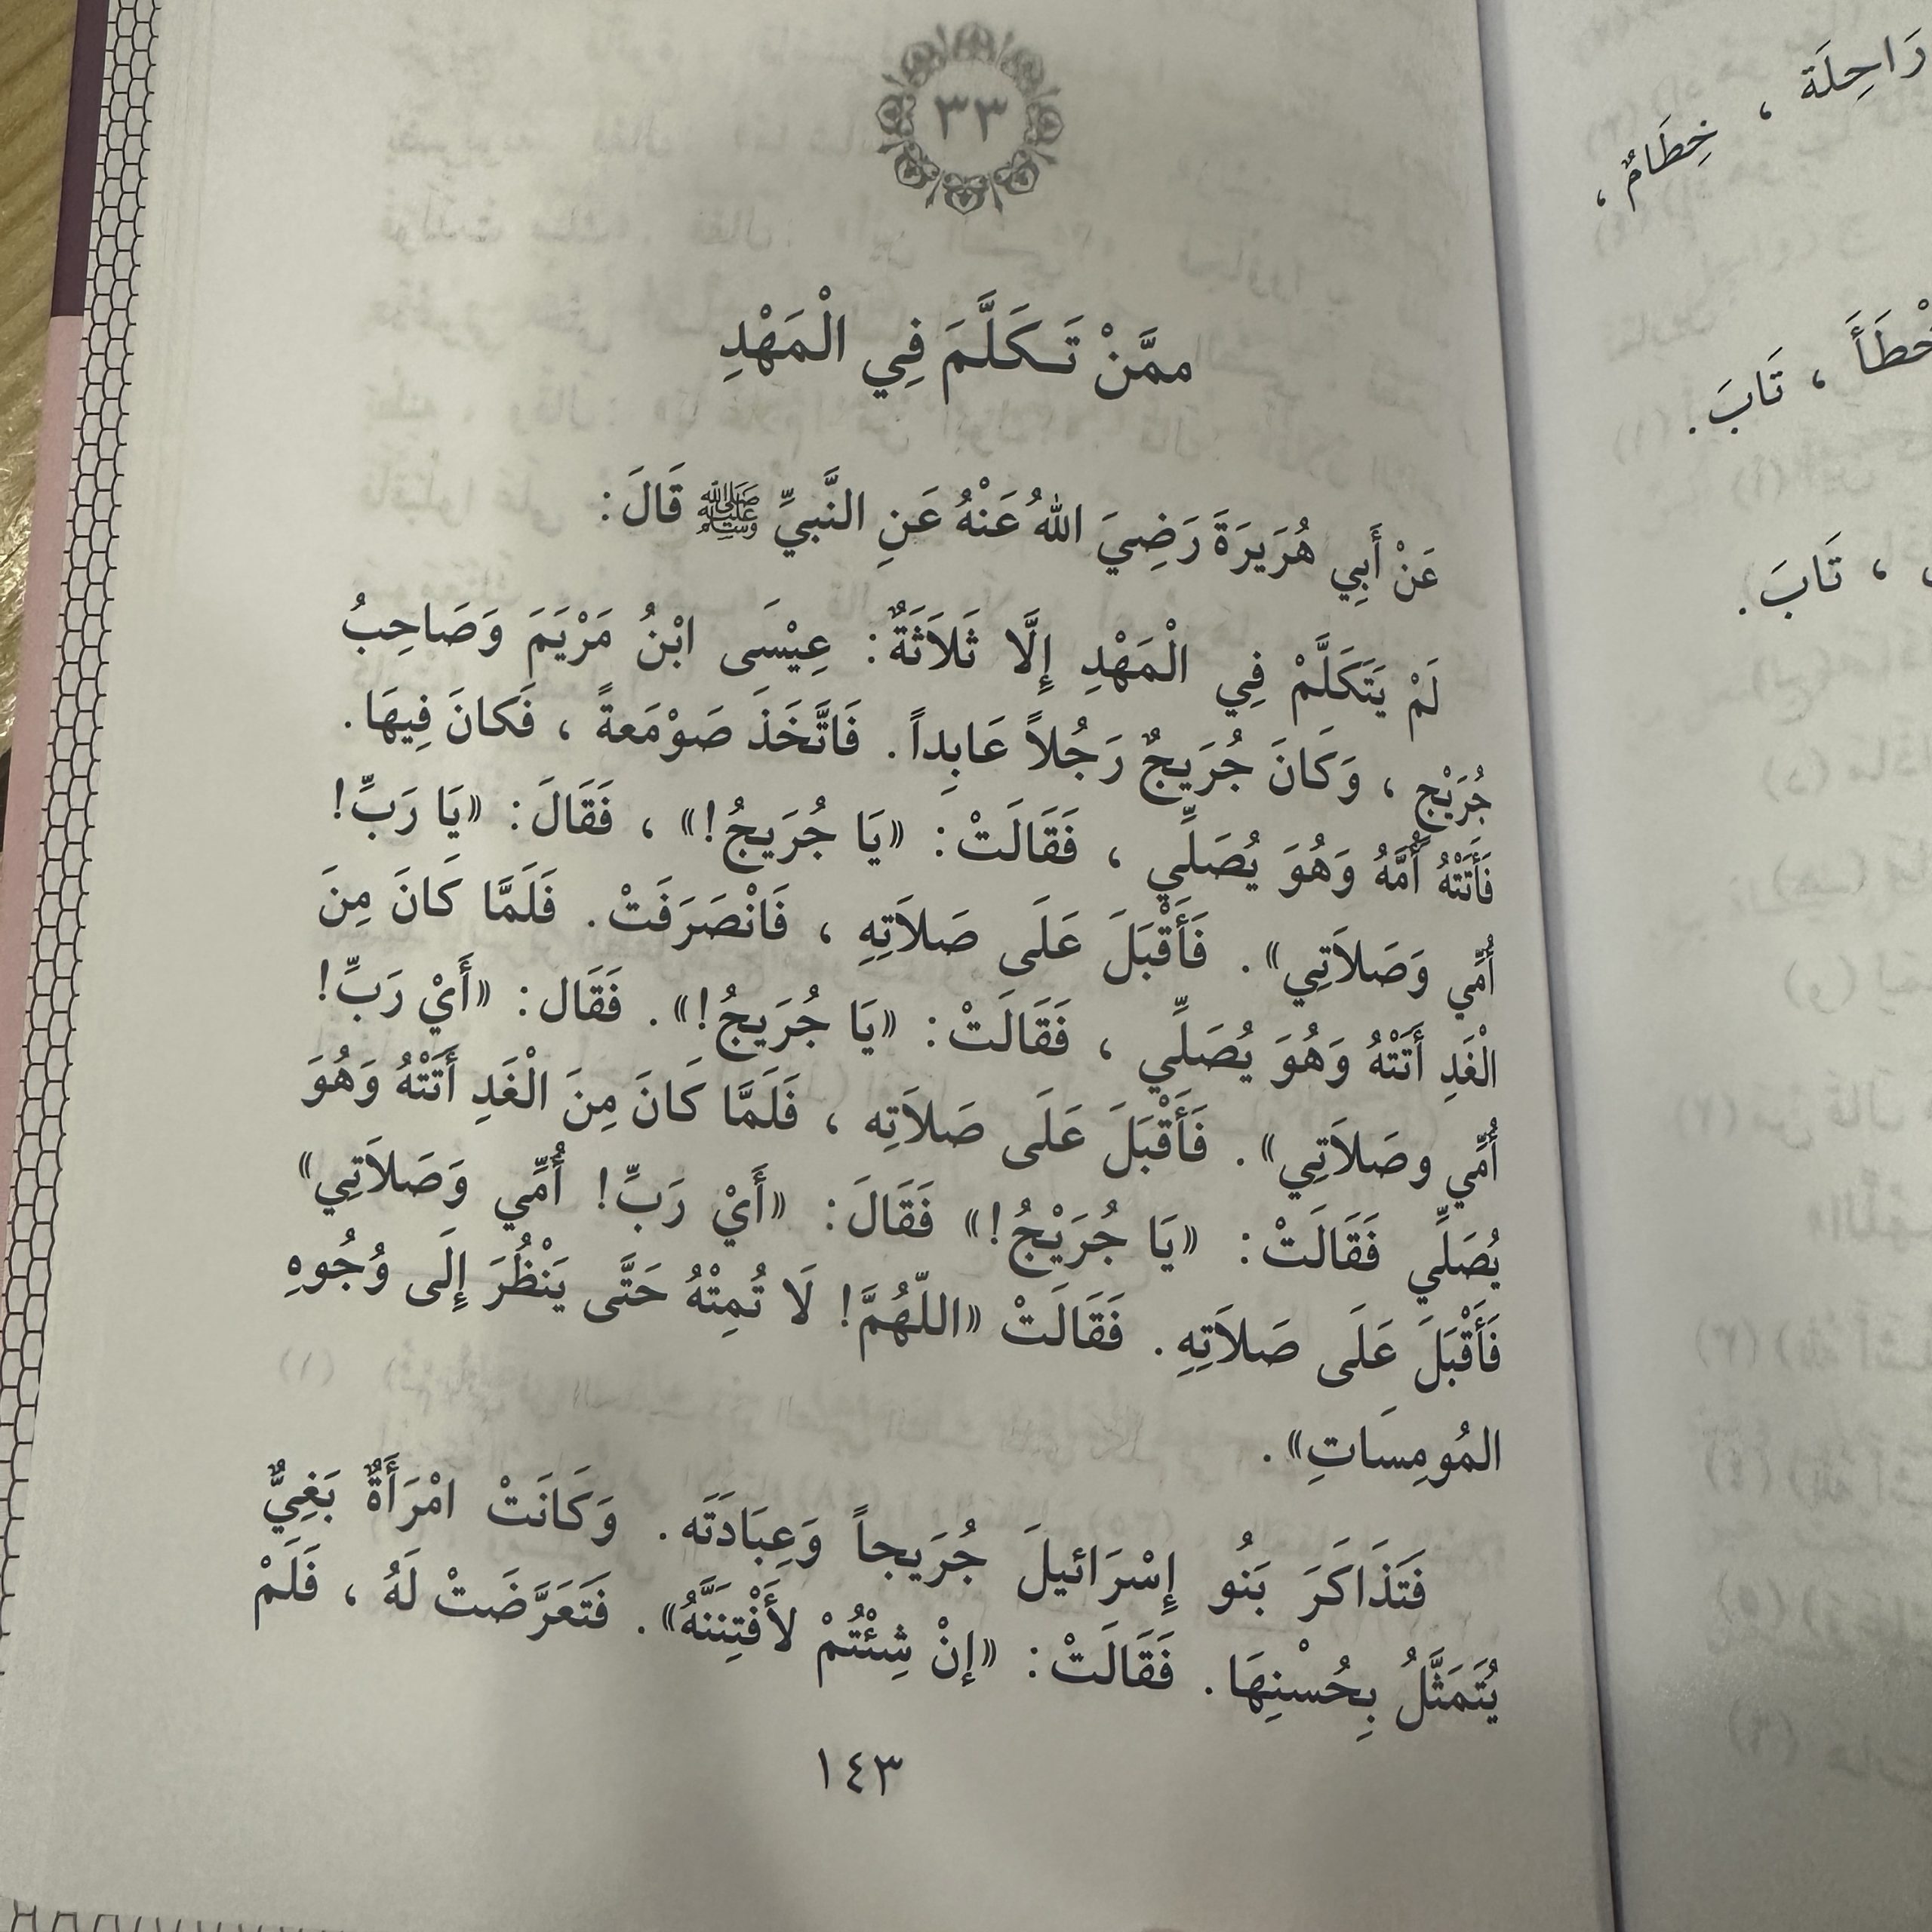 ٣٣
ممَّنْ تَكَلَّمَ فِي الْمَهْدِ
عَنْ أَبِي هُرَيرَةَ رَضِيَ اللهُ عَنْهُ عَنِ النَّبيِّ ﷺ قَالَ:
لَمْ يَتَكَلَّمْ فِي الْمَهْدِ إِلَّا ثَلاَثَةٌ: عِيْسَى ابْنُ مَرْيَمَ وَصَاحِبُ
جُرَيْجٍ ، وَكَانَ جُرَيجٌ رَجُلاً عَابِداً. فَاتَّخَذَ صَوْمَعةً ، فَكانَ فِيهَا.
فَأَتَتْهُ أُمَّهُ وَهُوَ يُصَلِّي ، فَقَالَتْ: «يَا جُرَيجُ!» ، فَقَالَ: «يَا رَبِّ!
أُمِّي وَصَلاَتِي». فَأَقْبَلَ عَلَى صَلاَتِهِ ، فَانْصَرَفَتْ. فَلَمَّا كَانَ مِنَ
الْغَدِ أَتَتْهُ وَهُوَ يُصَلِّي ، فَقَالَتْ: «يَا جُرَيجُ!». فَقَال: «أَيْ رَبِّ!
أُمِّي وصَلاَتِي». فَأَقْبَلَ عَلَى صَلاَتِه ، فَلَمَّا كَانَ مِنَ الْغَدِ أَتَتْهُ وَهُوَ
يُصَلِّي فَقَالَتْ: «يَا جُرَيْجُ!» فَقَالَ: «أَيْ رَبِّ! أُمِّي وَصَلاَتِي»
فَأَقْبَلَ عَلَى صَلاَتِهِ. فَقَالَتْ «اللّهُمَّ! لَا تُمِتْهُ حَتَّى يَنْظُرَ إِلَى وُجُوهِ
المُومِسَاتِ».
فَتَذَاكَرَ بَنُو إِسْرَائيلَ جُرَيجاً وَعِبَادَتَه. وَكَانَتْ امْرَأَةٌ بَغِيٌّ
يُتَمَثَّلُ بِحُسْنِهَا. فَقَالَتْ: «إنْ شِئْتُمْ لأَفْتِنَنَّهُ». فَتَعَرَّضَتْ لَهُ ، فَلَمْ
١٤٣
رَاحِلَة ،
خِطَامٌ ،
، تَابَ.
، تَابَ.